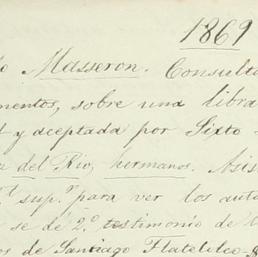 1869
Masseron. Consulta
mentos, sobre una libra
y aceptada por Sixto
del Rio, hermanos. Asis
sup.r para ver los auto
se de 2.o testimonio de
de Santiago Tlatelilco